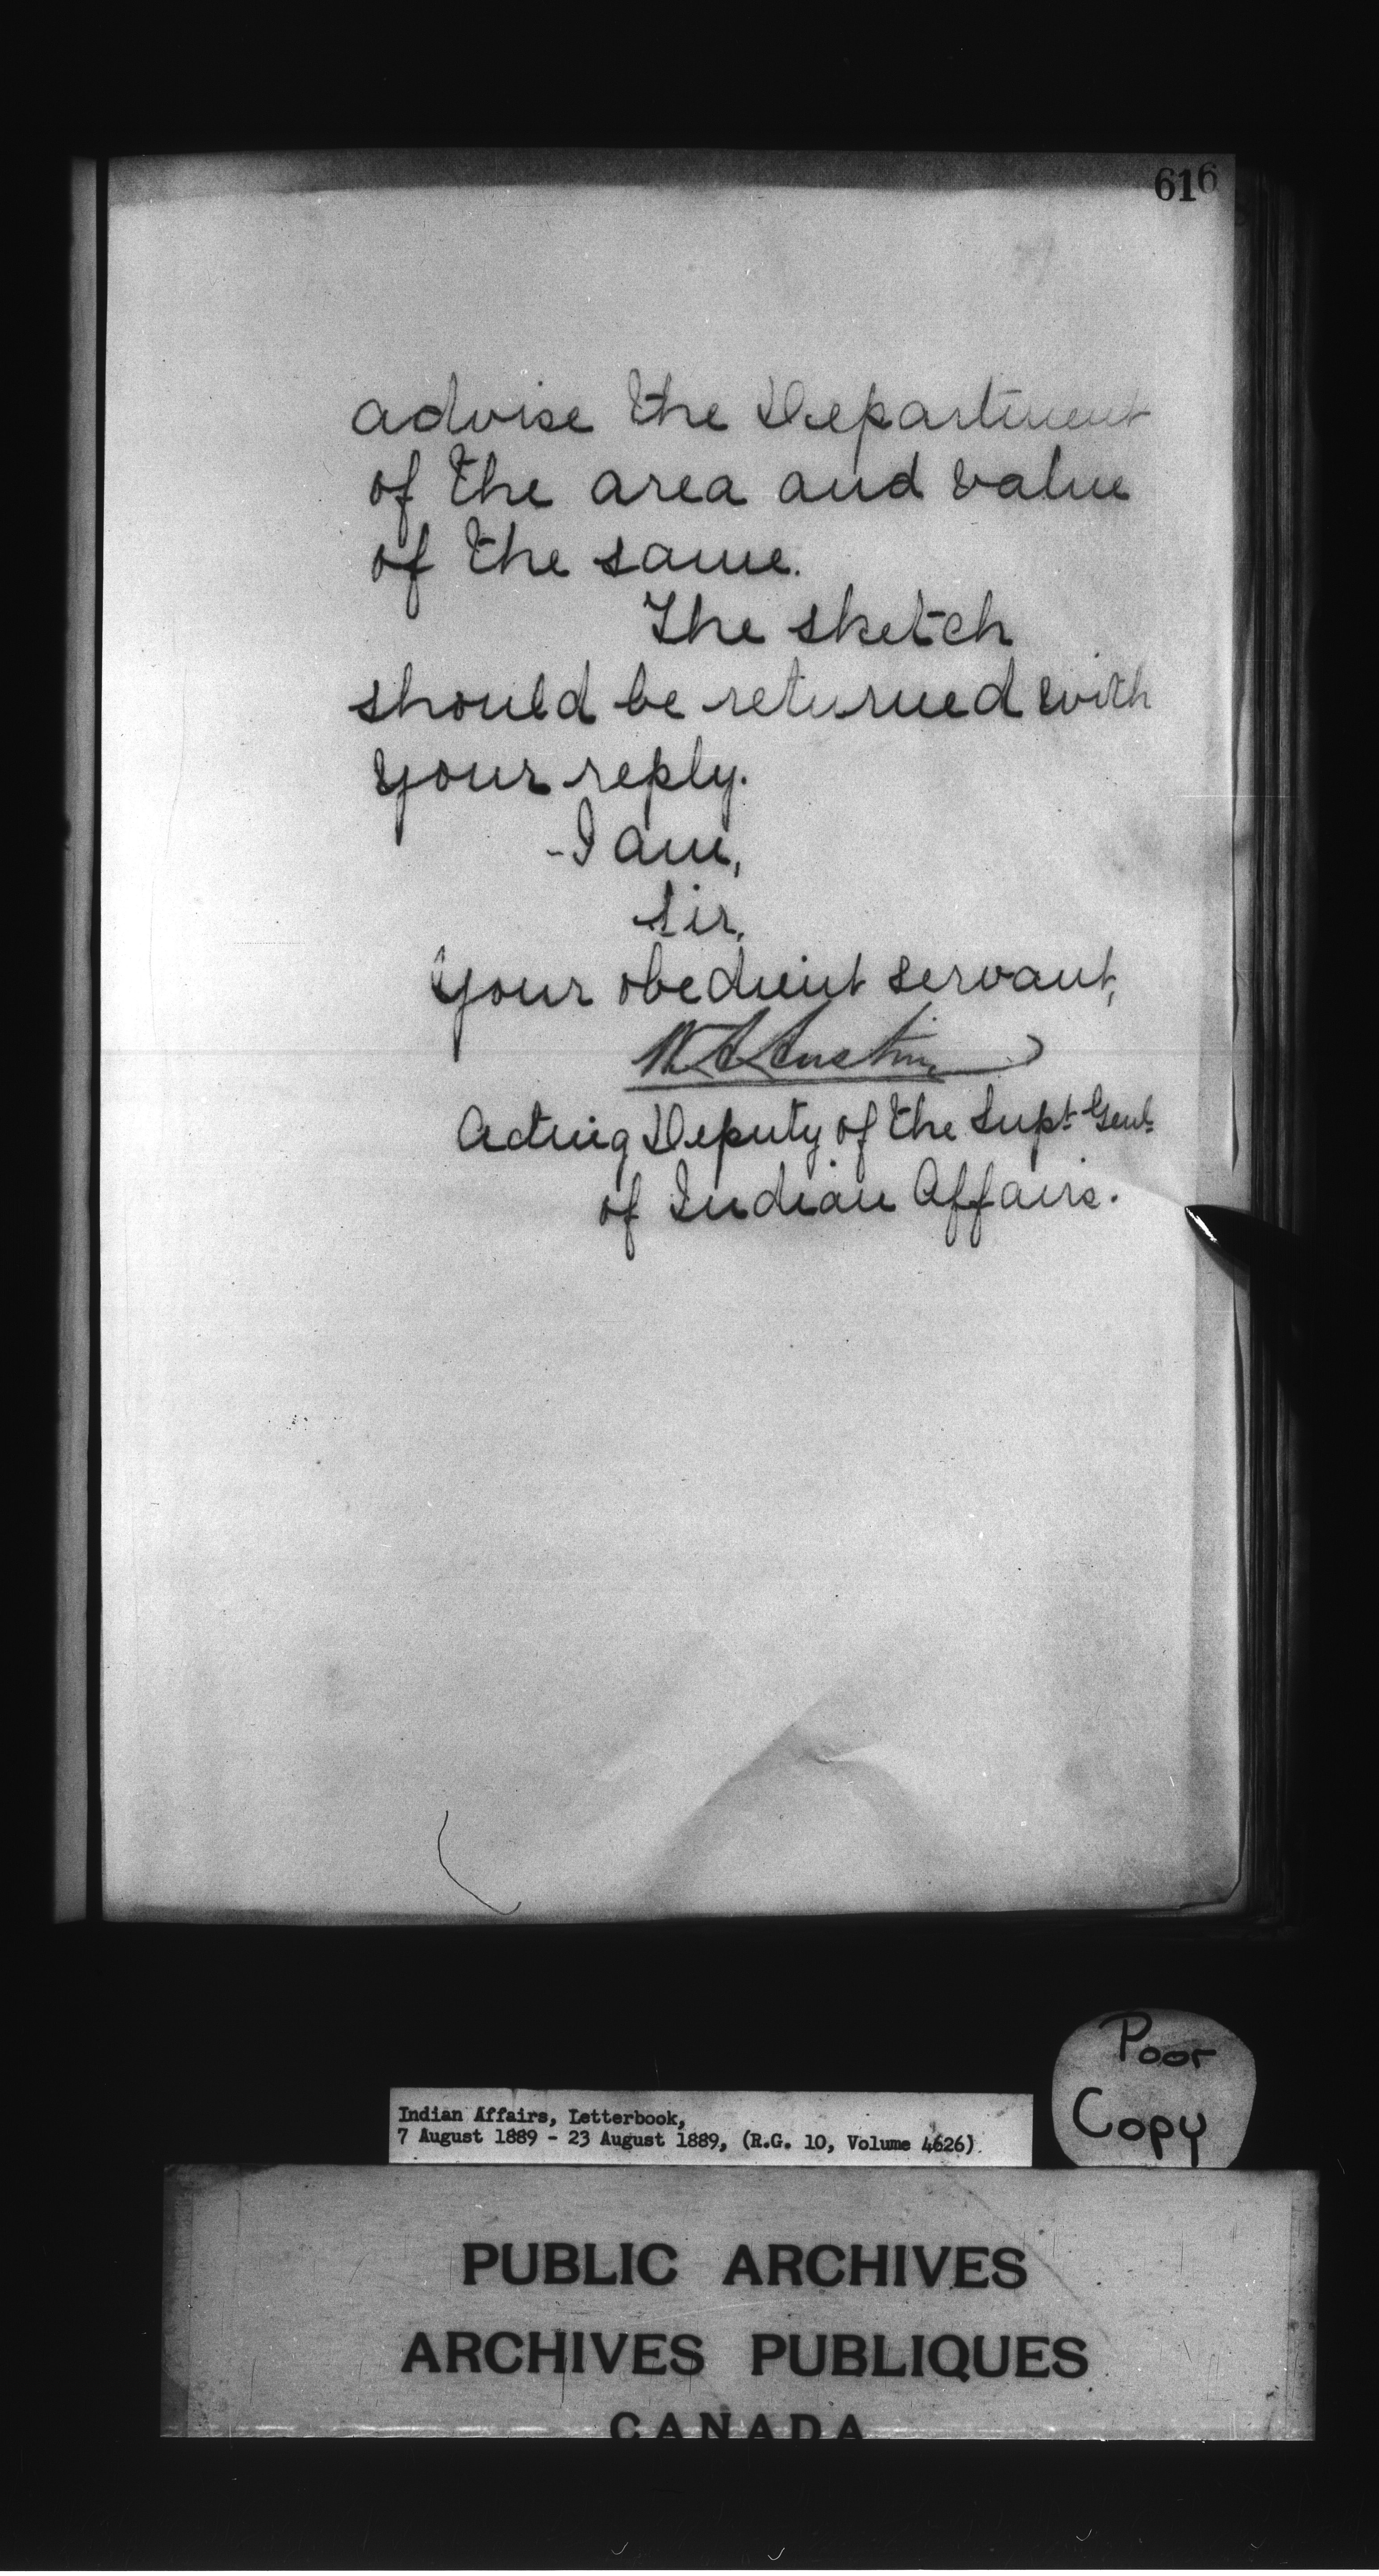 616
advise the Department
of the area and value
of the same.
The sketch
should be returned with
your reply.
I am,
Sir,
Your obedient servant,
W A Austin
Acting Deputy of the Supt Genl.
of Indian Affairs.
Poor
Copy
Indian Affairs, Letterbook,
7 August 1889 - 23 August 1889, (R.G. 10, Volume 4626)
PUBLIC ARCHIVES
ARCHIVES PUBLIQUES
CANADA